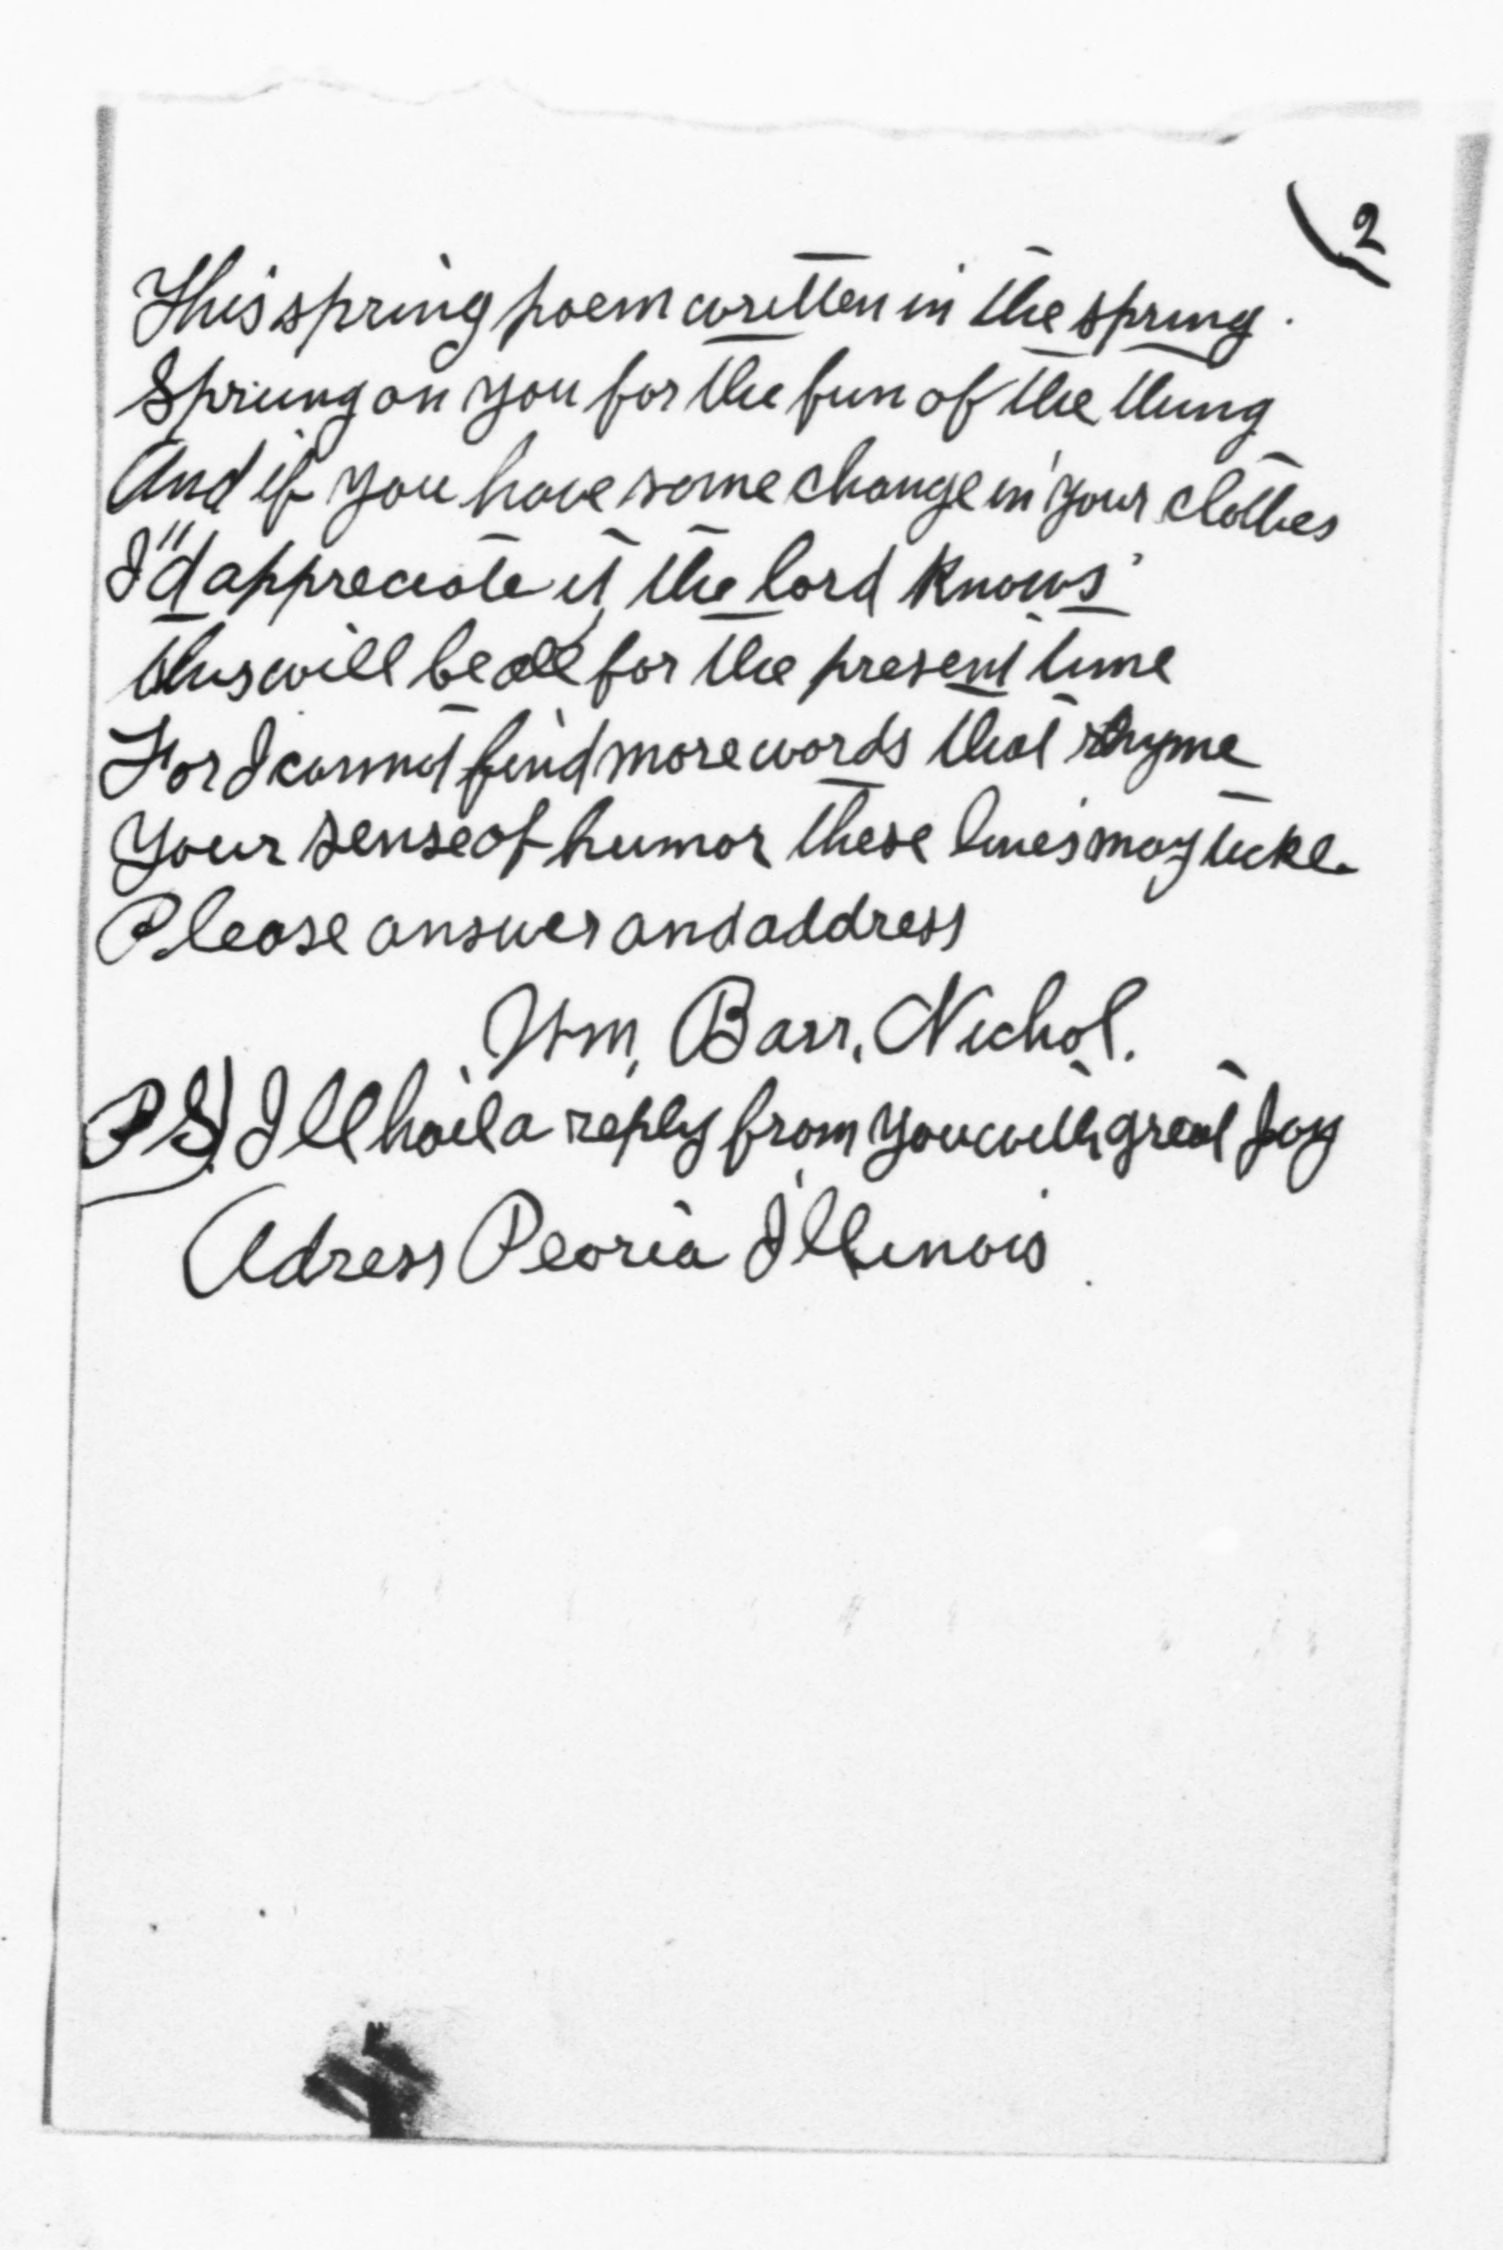 2
This spring poem written in the spring.
Sprung on you for the fun of the thing
And if you have some change in your clothes
I"d appreciate it, the lord knows
this will be all for the present time
For I cannot find more words that rhyme
Your sense of humor these lines may tickle
Please answer and address
Wm, Barr, Nichol.
PS) Ill hail a reply from you with great Joy
Adress Peoria Illinois